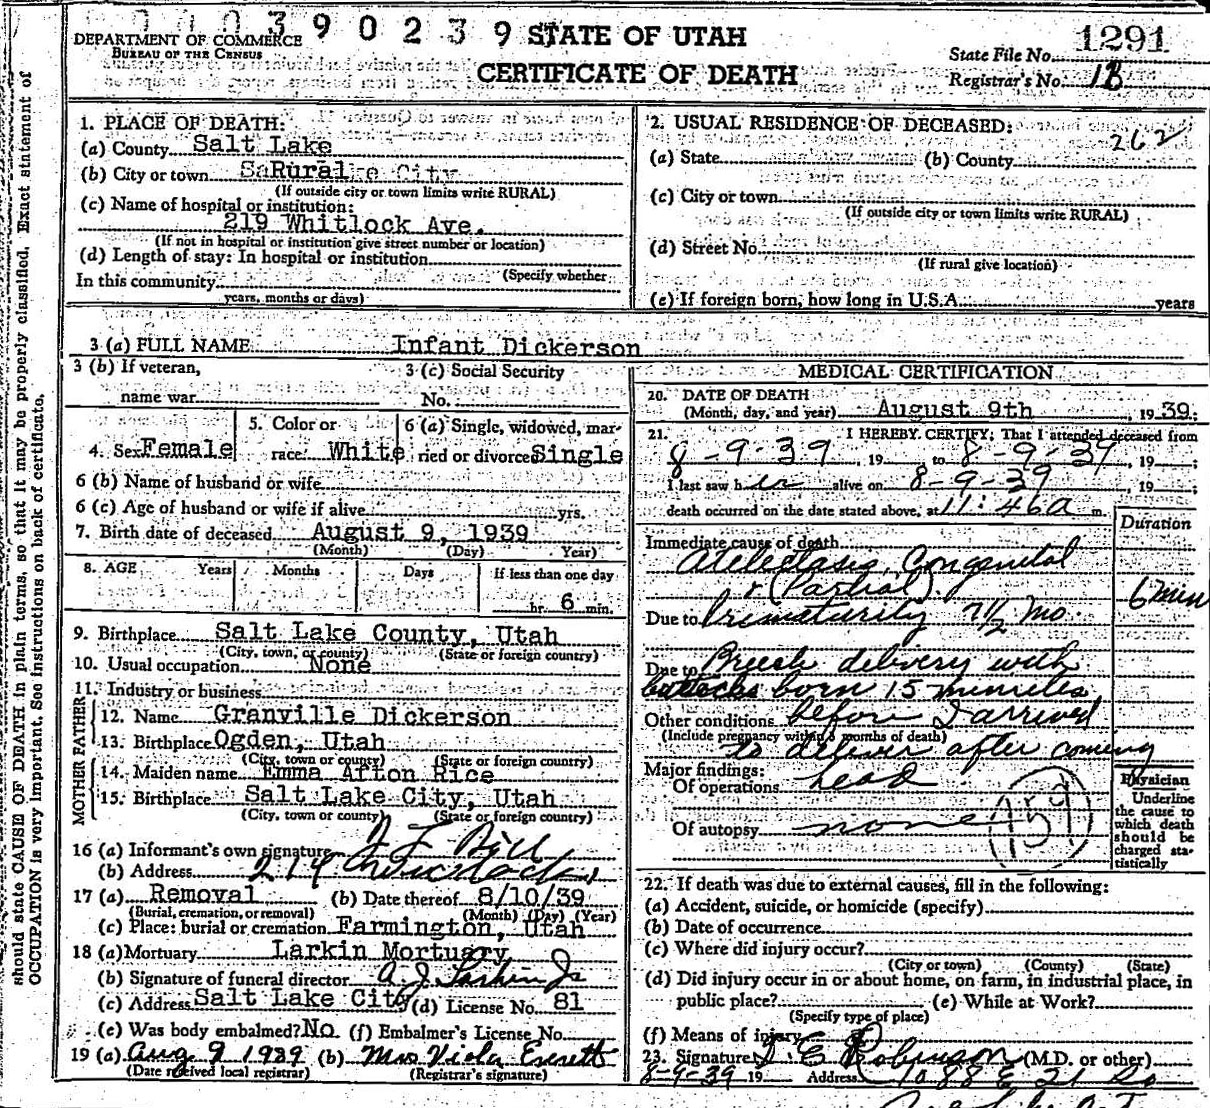 390239 STATE OF UTAH
DEPARTMENT OF COMMERCE
BUREAU OF THE CENSUS
CERTIFICATE OF DEATH
State File No. 1291
Registrar's No. 18
1. PLACE OF DEATH:
(a) County Salt Lake
(b) City or town Rural
(If outside city or town limits write RURAL)
(c) Name of hospital or institution:
219 Whitlock Ave.
(If not in hospital or institution give street number or location)
(d) Length of stay: In hospital or institution
(Specify whether
In this community
years, months or days)
2. USUAL RESIDENCE OF DECEASED:
262
(a) State (b) County
(c) City or town
(If outside city or town limits write RURAL)
(d) Street No.
(If rural give location)
(e) If foreign born, how long in U.S.A. years
3 (a) FULL NAME Infant Dickerson
3 (b) If veteran,
name war
3 (c) Social Security
No.
4. Sex Female
5. Color or
race White
6 (a) Single, widowed, mar-
ried or divorced Single
6 (b) Name of husband or wife
6 (c) Age of husband or wife if alive yrs.
7. Birth date of deceased August 9, 1939
(Month) (Day) Year)
8. AGE Years Months Days If less than one day
hr. 6 min.
9. Birthplace Salt Lake County, Utah
(City, town, or county) (State or foreign country)
10. Usual occupation None
11. Industry or business
FATHER
12. Name Granville Dickerson
13. Birthplace Ogden, Utah
(City, town or county) (State or foreign country)
MOTHER
14. Maiden name Emma Afton Rice
15. Birthplace Salt Lake City, Utah
(City, town or county) (State or foreign country)
16 (a) Informant's own signature
(b) Address 219
17 (a) Removal (b) Date thereof 8/10/39
(Burial, cremation, or removal) (Month) (Day) (Year)
(c) Place: burial or cremation Farmington, Utah
18 (a) Mortuary Larkin Mortuary
(b) Signature of funeral director A. J. Larkin Jr
(c) Address Salt Lake City (d) License No. 81
(e) Was body embalmed? No (f) Embalmer's License No.
19 (a) Aug 9 1939 (b) Mrs Viola Everett
(Date received local registrar) (Registrar's signature)
MEDICAL CERTIFICATION
20. DATE OF DEATH
(Month, day, and year) August 9th, 1939;
21. I HEREBY CERTIFY; That I attended deceased from
8-9-39, 19 to 8-9-39, 19 ;
I last saw her alive on 8-9-39, 19 ;
death occurred on the date stated above, at 11:46a m.
Duration
Immediate cause of death
Atelectasis, Congenital
(Partial)
6 min
Due to Prematurity 7½ mo.
Due to Breech delivery with
buttocks born 15 minutes
Other conditions before I arrived
(Include pregnancy within 3 months of death)
to deliver after coming
Major findings:
Of operations head
Of autopsy none
159
Physician
Underline
the cause to
which death
should be
charged sta-
tistically
22. If death was due to external causes, fill in the following:
(a) Accident, suicide, or homicide (specify)
(b) Date of occurrence
(c) Where did injury occur?
(City or town) (County) (State)
(d) Did injury occur in or about home, on farm, in industrial place, in
public place? (e) While at Work?
(Specify type of place)
(f) Means of injury
23. Signature E Robinson (M.D. or other)
8-9-39 19 Address 1088 E 21 So
should state CAUSE OF DEATH in plain terms, so that it may be properly classified. Exact statement of
OCCUPATION is very important. See instructions on back of certificate.